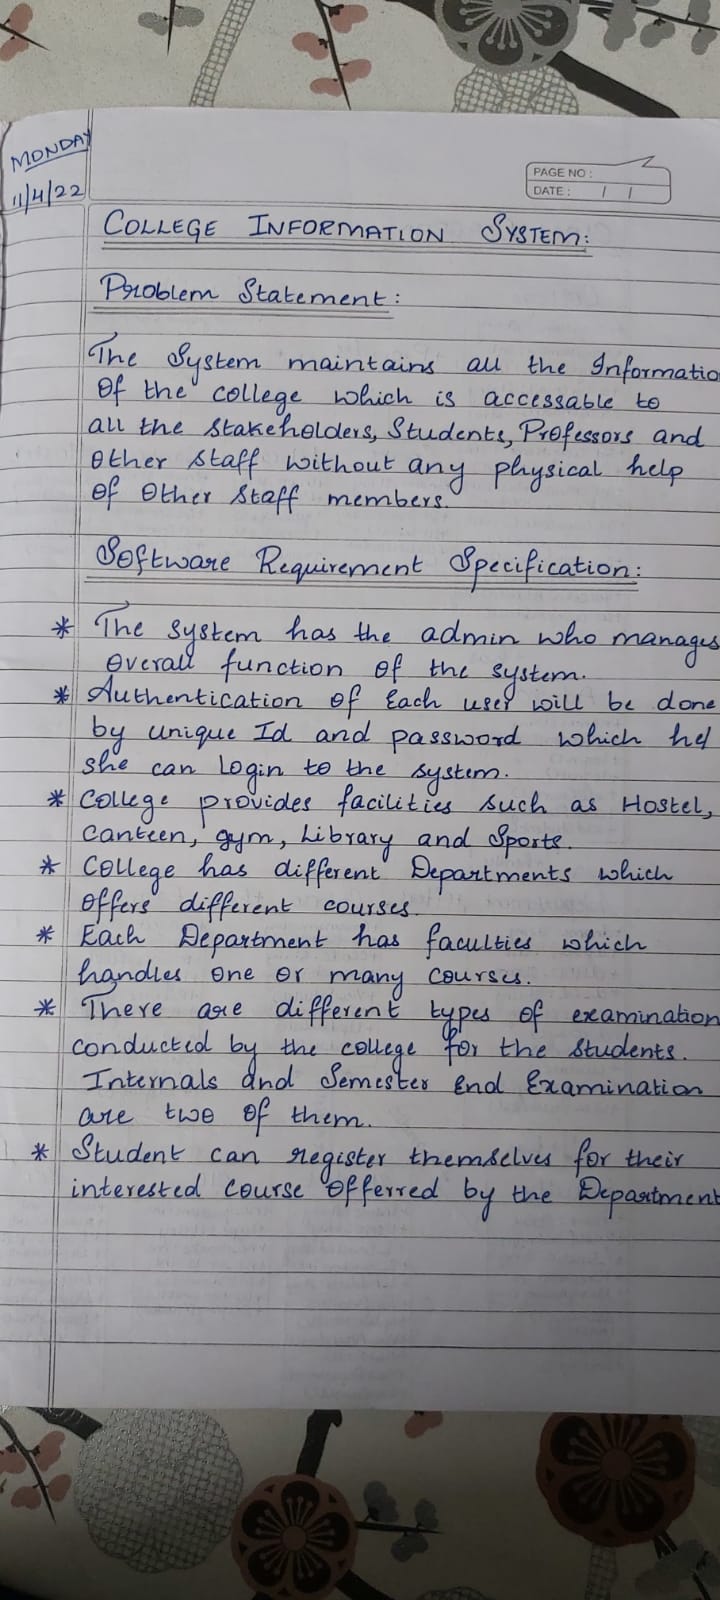 MONDAY
11/4/22
PAGE NO :
DATE : / /
COLLEGE INFORMATION SYSTEM:
Problem Statement:
The System maintains all the Informatio
Of the college which is accessable to
all the Stakeholders, Students, Professors and
Other staff without any physical help
Of Other Staff members.
Software Requirement Specification:
* The system has the admin who manages
Overall function of the system.
* Authentication of Each user will be done
by unique Id and password which he/
she can Login to the system.
* College provides facilities such as Hostel,
Canteen, gym, Library and Sports.
* College has different Departments which
Offers different courses.
* Each Department has faculties which
handles one or many Courses.
* There are different types of examination
Conducted by the college for the Students.
Internals and Semester End Examination
are two of them.
* Student can register themselves for their
interested Course Offerred by the Department